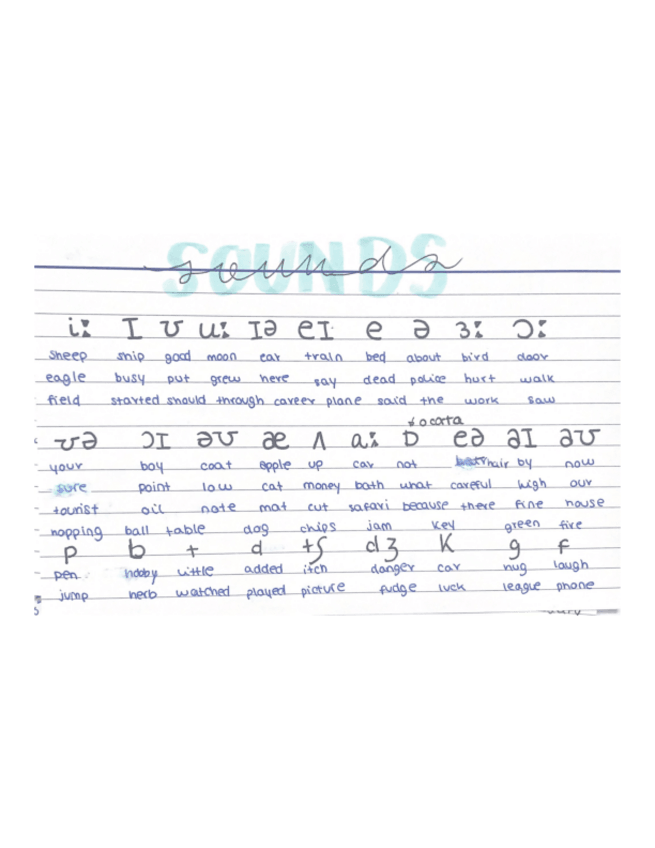 SOUNDS
sounds
i: I ʊ u: Iə eI e ə ɜ: ɔ:
sheep ship good moon ear train bed about bird door
eagle busy put grew here say dead police hurt walk
field started should through career plane said the work saw
ʊə ɔI əʊ æ ʌ a: ɒ eə əI əʊ
your boy coat apple up car not hair by now
sure point low cat money bath what careful high our
tourist oil note mat cut safari because there fine house
hopping ball table dog chips jam key green five
p b t d tʃ dʒ k g f
pen hobby little added itch danger car hug laugh
jump herb watched played picture fudge luck league phone